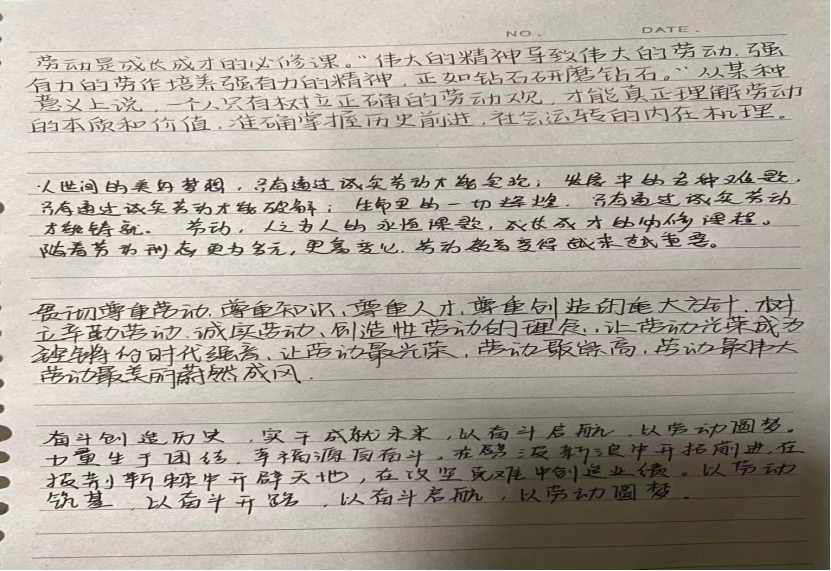 NO. DATE.
劳动是成长成才的必修课。"伟大的精神导致伟大的劳动,强
有力的劳作培养强有力的精神,正如钻石研磨钻石。"从某种
意义上说,一个人只有树立正确的劳动观,才能真正理解劳动
的本质和价值,准确掌握历史前进、社会运转的内在机理。
人世间的美好梦想,只有通过诚实劳动才能实现;发展中的各种难题,
只有通过诚实劳动才能破解;生命里的一切辉煌,只有通过诚实劳动
才能铸就。劳动,人之为人的永恒课题,成长成才的必修课程。
随着劳动形态更为多元,更富变化,劳动教育变得越来越重要。
贯彻尊重劳动、尊重知识、尊重人才、尊重创造的重大方针,树
立辛勤劳动、诚实劳动、创造性劳动的理念,让劳动光荣成为
铿锵的时代强音,让劳动最光荣,劳动最崇高,劳动最伟大
劳动最美丽蔚然成风.
奋斗创造历史,实干成就未来,以奋斗启航,以劳动圆梦。
力量生于团结,幸福源自奋斗,在劈波斩浪中开拓前进,在
披荆斩棘中开辟天地,在攻坚克难中创造业绩。以劳动
筑基,以奋斗开路,以奋斗启航,以劳动圆梦.